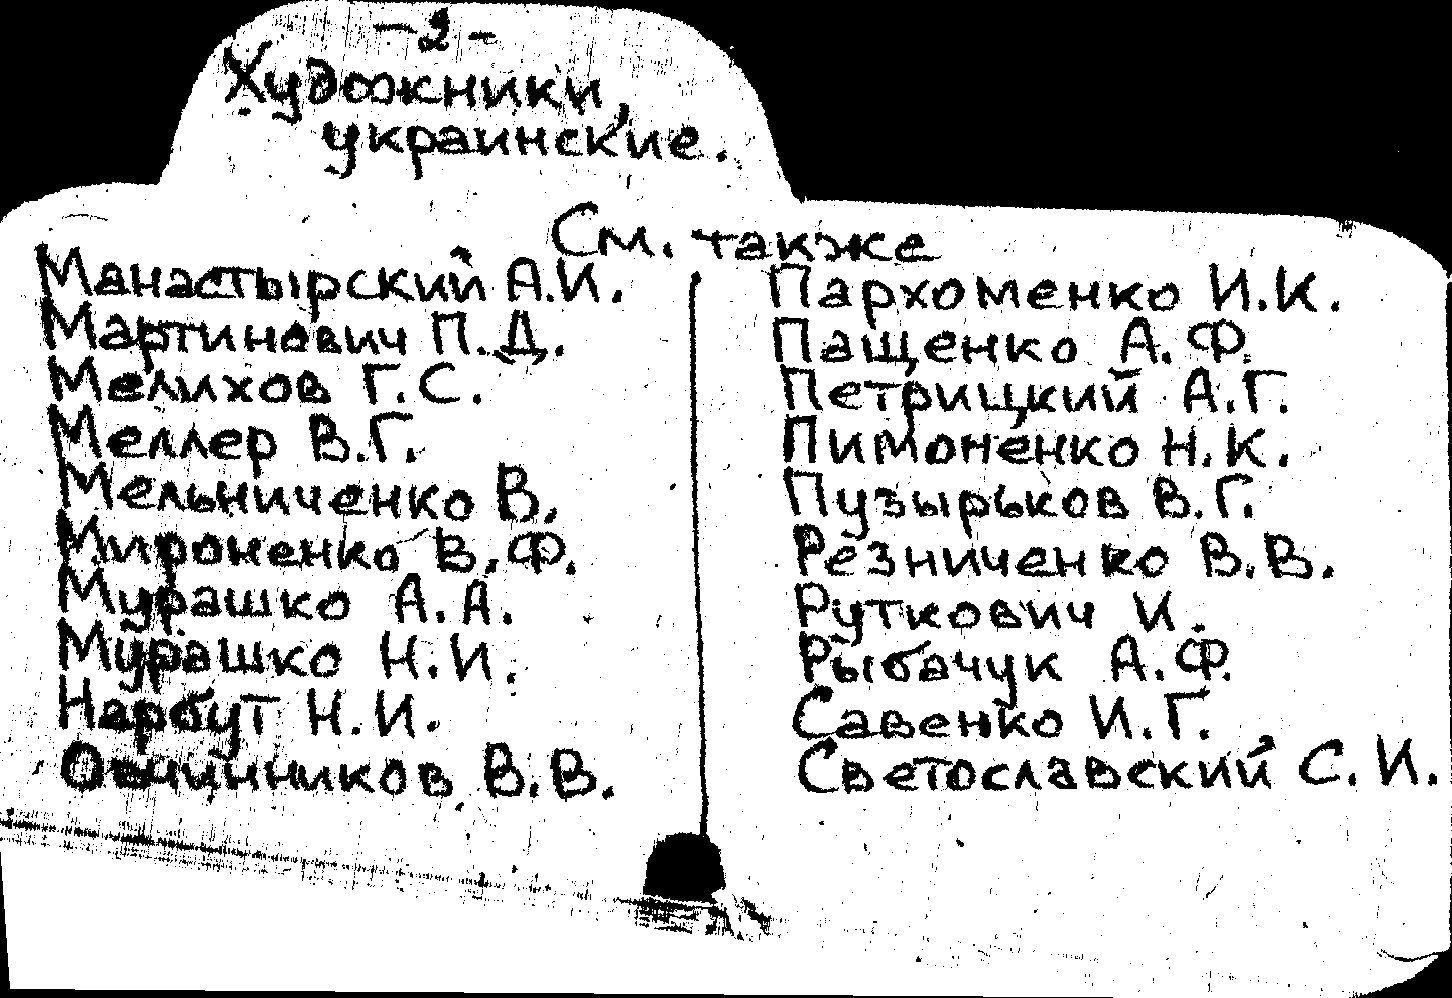 - 2 -
Художники,
украинские.
См. также
Манастырский А.И.
Мартинович П.Д.
Мелихов Г.С.
Меллер В.Г.
Мельниченко В.
Мироненко В.Ф.
Мурашко А.А.
Мурашко Н.И.
Нарбут Н.И.
Овчинников В.В.
Пархоменко И.К.
Пащенко А.Ф.
Петрицкий А.Г.
Пимоненко Н.К.
Пузырьков В.Г.
Резниченко В.В.
Руткович И.
Рыбачук А.Ф.
Савенко И.Г.
Светославский С.И.